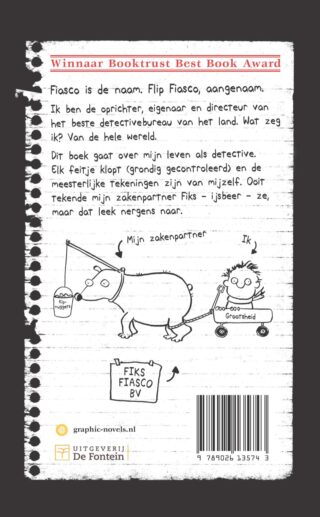 Winnaar Booktrust Best Book Award
Fiasco is de naam. Flip Fiasco, aangenaam.
Ik ben de oprichter, eigenaar en directeur van
het beste detectivebureau van het land. Wat zeg
ik? Van de hele wereld.
Dit boek gaat over mijn leven als detective.
Elk feitje klopt (grondig gecontroleerd) en de
meesterlijke tekeningen zijn van mijzelf. Ooit
tekende mijn zakenpartner Fiks – ijsbeer – ze,
maar dat leek nergens naar.
Mijn zakenpartner
Ik
Kip-
nuggets
Grootsheid
FIKS
FIASCO
BV
graphic-novels.nl
UITGEVERIJ
De Fontein
9 789026 135743